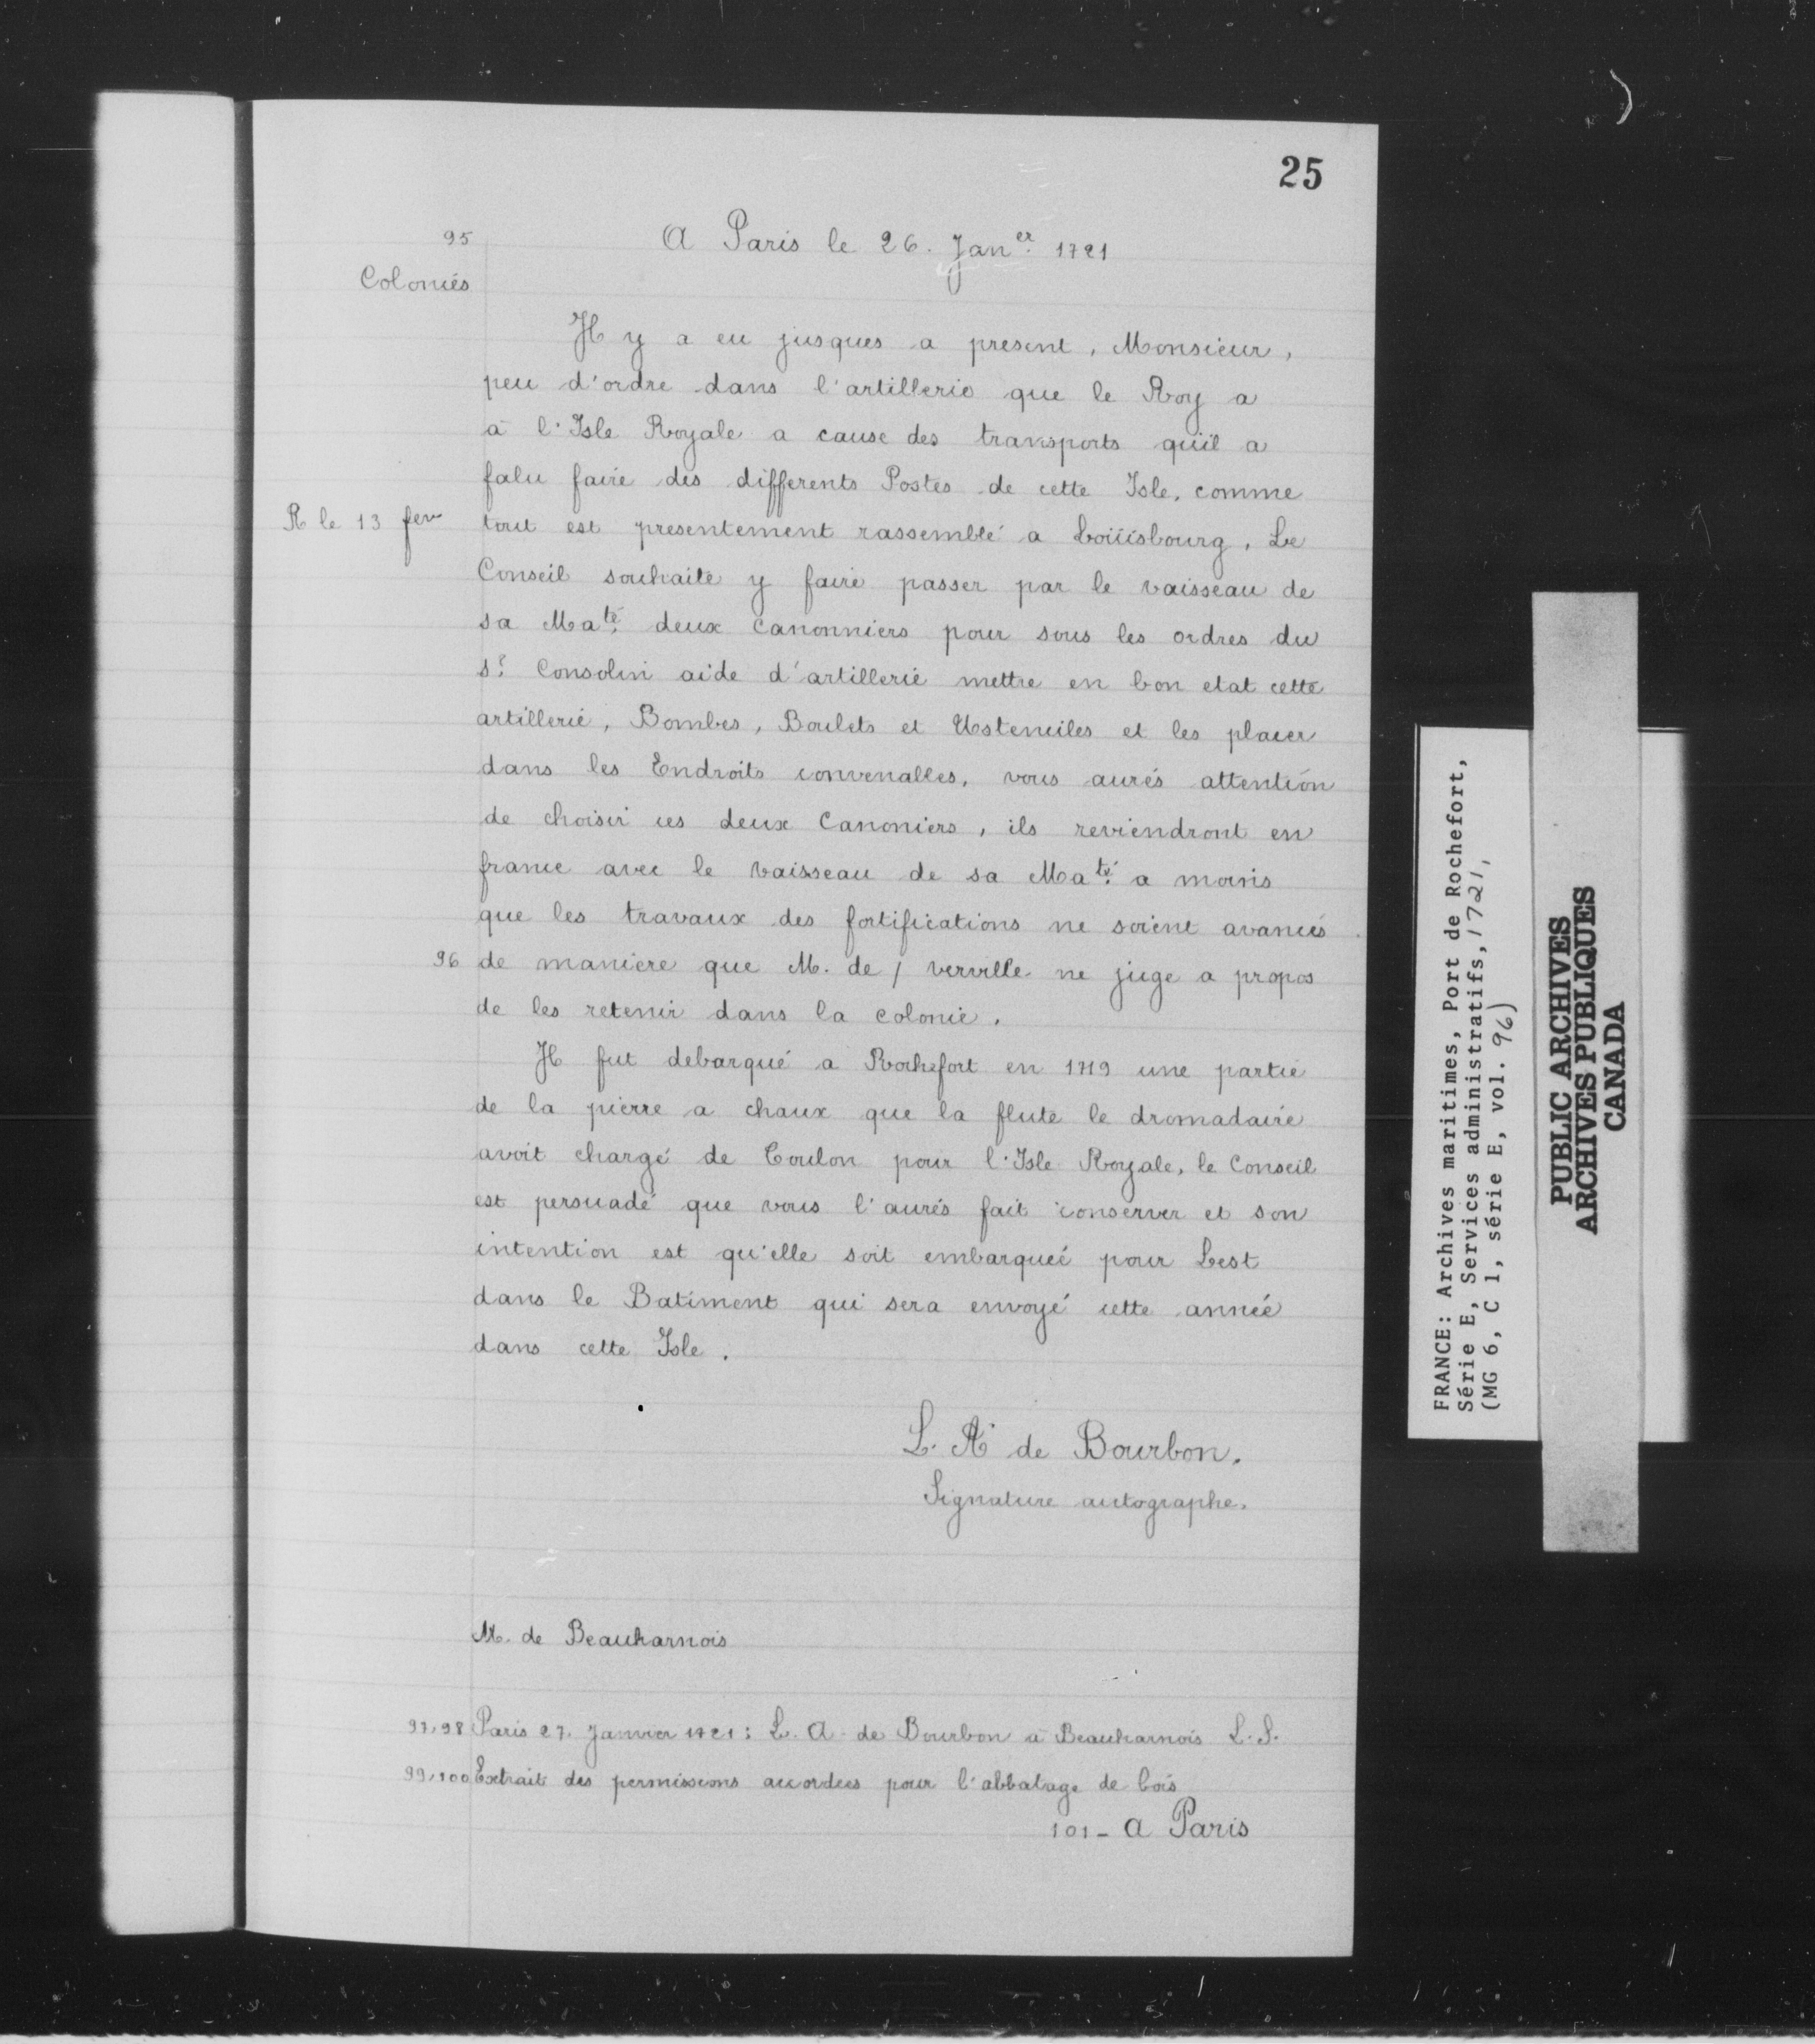 25
95
A Paris le 26. Jan.er 1721
Colonies
Il y a eu jusques a present, Monsieur,
peu d'ordre dans l'artillerie que le Roy a
à l'Isle Royale a cause des transports qu'il a
falu faire des differents Postes de cette Isle, comme
R le 13 fevr
tout est presentement rassemblé a Loüisbourg, Le
Conseil souhaite y faire passer par le vaisseau de
sa Ma.té deux canonniers pour sous les ordres du
s.r Consolin aide d'artillerie mettre en bon etat cette
artillerie, Bombes, Boulets et Ustenciles et les placer
dans les Endroits convenables, vous aurés attention
de choisir ces deux Canoniers, ils reviendront en
france avec le vaisseau de sa Ma.té a moins
que les travaux des fortifications ne soient avancés
96 de maniere que M. de / verville ne juge a propos
de les retenir dans la colonie.
Il fut debarqué a Rochefort en 1719 une partie
de la pierre a chaux que la flute le dromadaire
avoit chargé de Toulon pour l'Isle Royale, le Conseil
est persuadé que vous l'aurés fait conserver et son
intention est qu'elle soit embarqueé pour Lest
dans le Batiment qui sera envoyé cette année
dans cette Isle.
L. A de Bourbon.
Signature autographe.
M. de Beauharnois
97,98 Paris 27 Janvier 1721: L. A. de Bourbon à Beauharnois L.S.
99,100 Extrait des permissions accordees pour l'abbatage de bois
101 - A Paris
FRANCE: Archives maritimes, Port de Rochefort,
Série E, Services administratifs, 1721,
(MG 6, C 1, série E, vol. 96)
PUBLIC ARCHIVES
ARCHIVES PUBLIQUES
CANADA